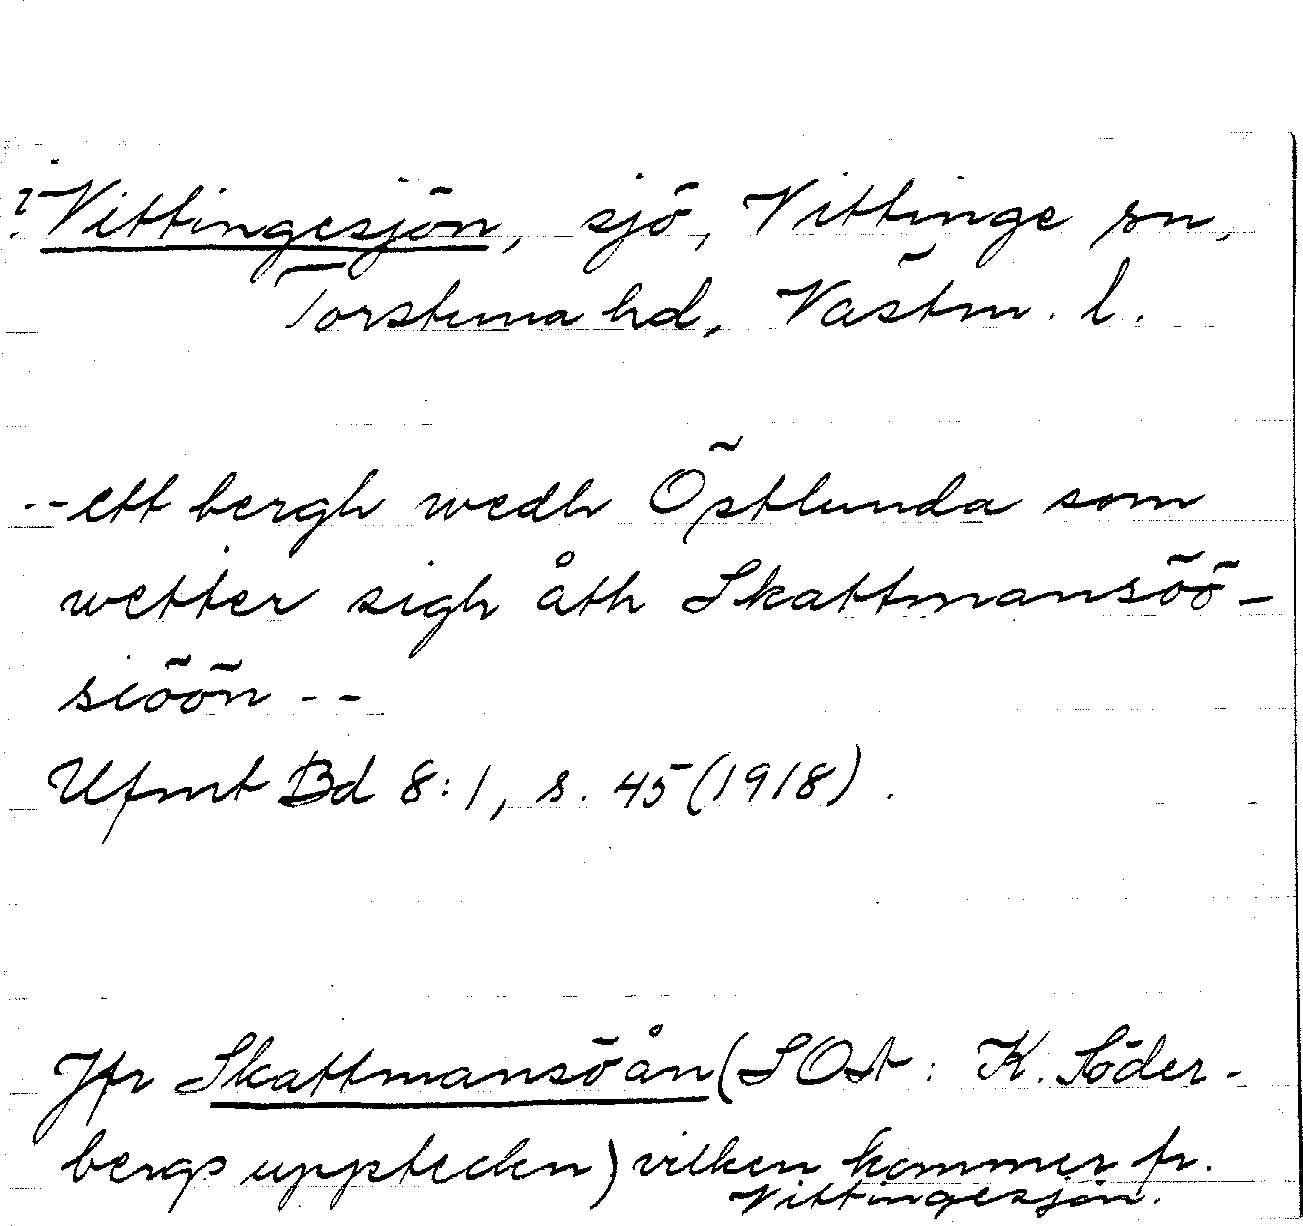 ? Vittingesjön, sjö, Vittinge sn,
Torstuna hd, Västm. l.
--ett bergh wedh Östlunda som
wetter sigh åth Skattmansöö-
siöön --
Ufmt Bd 8:1, s. 45 (1918).
Jfr Skattmansöån (SOSt: K. Söder-
bergs uppteckn) vilken kommer fr.
Vittingesjön.